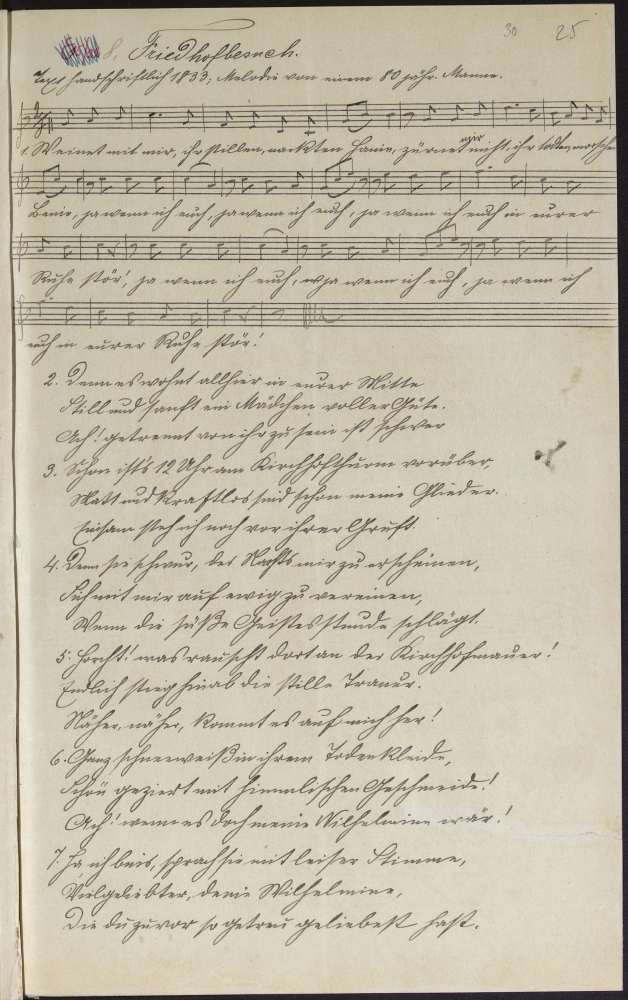 30 25
8. Friedhofbesuch.
Text handschriftlich 1833, Melodie von einem 80 jähr. Manne.
1. Weinet mit mir, ihr stillen, nackten Haine, zürnet mir nicht, ihr todten, morschen
Beine, ja wenn ich euch, ja wenn ich euch, ja wenn ich euch in eurer
Ruhe stör', ja wenn ich euch, ja wenn ich euch, ja wenn ich
euch in eurer Ruhe stör'!
2. Denn es wohnt allhier in eurer Mitte
Still und sanft ein Mädchen voller Güte.
Ach! getrennt von ihr zu sein ist schwer
3. Schon ist's 12 Uhr am Kirchhofthurm vorüber,
Matt und kraftlos sind schon meine Glieder.
Einsam steh ich noch vor ihrer Gruft.
4. Denn sie schwur, des Nachts mir zu erscheinen,
Sich mit mir auf ewig zu vereinen,
Wenn die süße Geistesstunde schlägt.
5. Horcht! was rauscht dort an der Kirchhofmauer!
Endlich stieg hinab die stille Trauer.
Näher, näher, kommt es auf mich her!
6. Ganz schneeweiß in ihrem Todenkleide,
Schön geziert mit himmlischen Geschmeide!
Ach! wenn es doch meine Wilhelmine wär!
7. Ja ich bins, sprach sie mit leiser Stimme,
Vielgeliebter, deine Wilhelmine,
Die du zuvor so getreu geliebest hast.